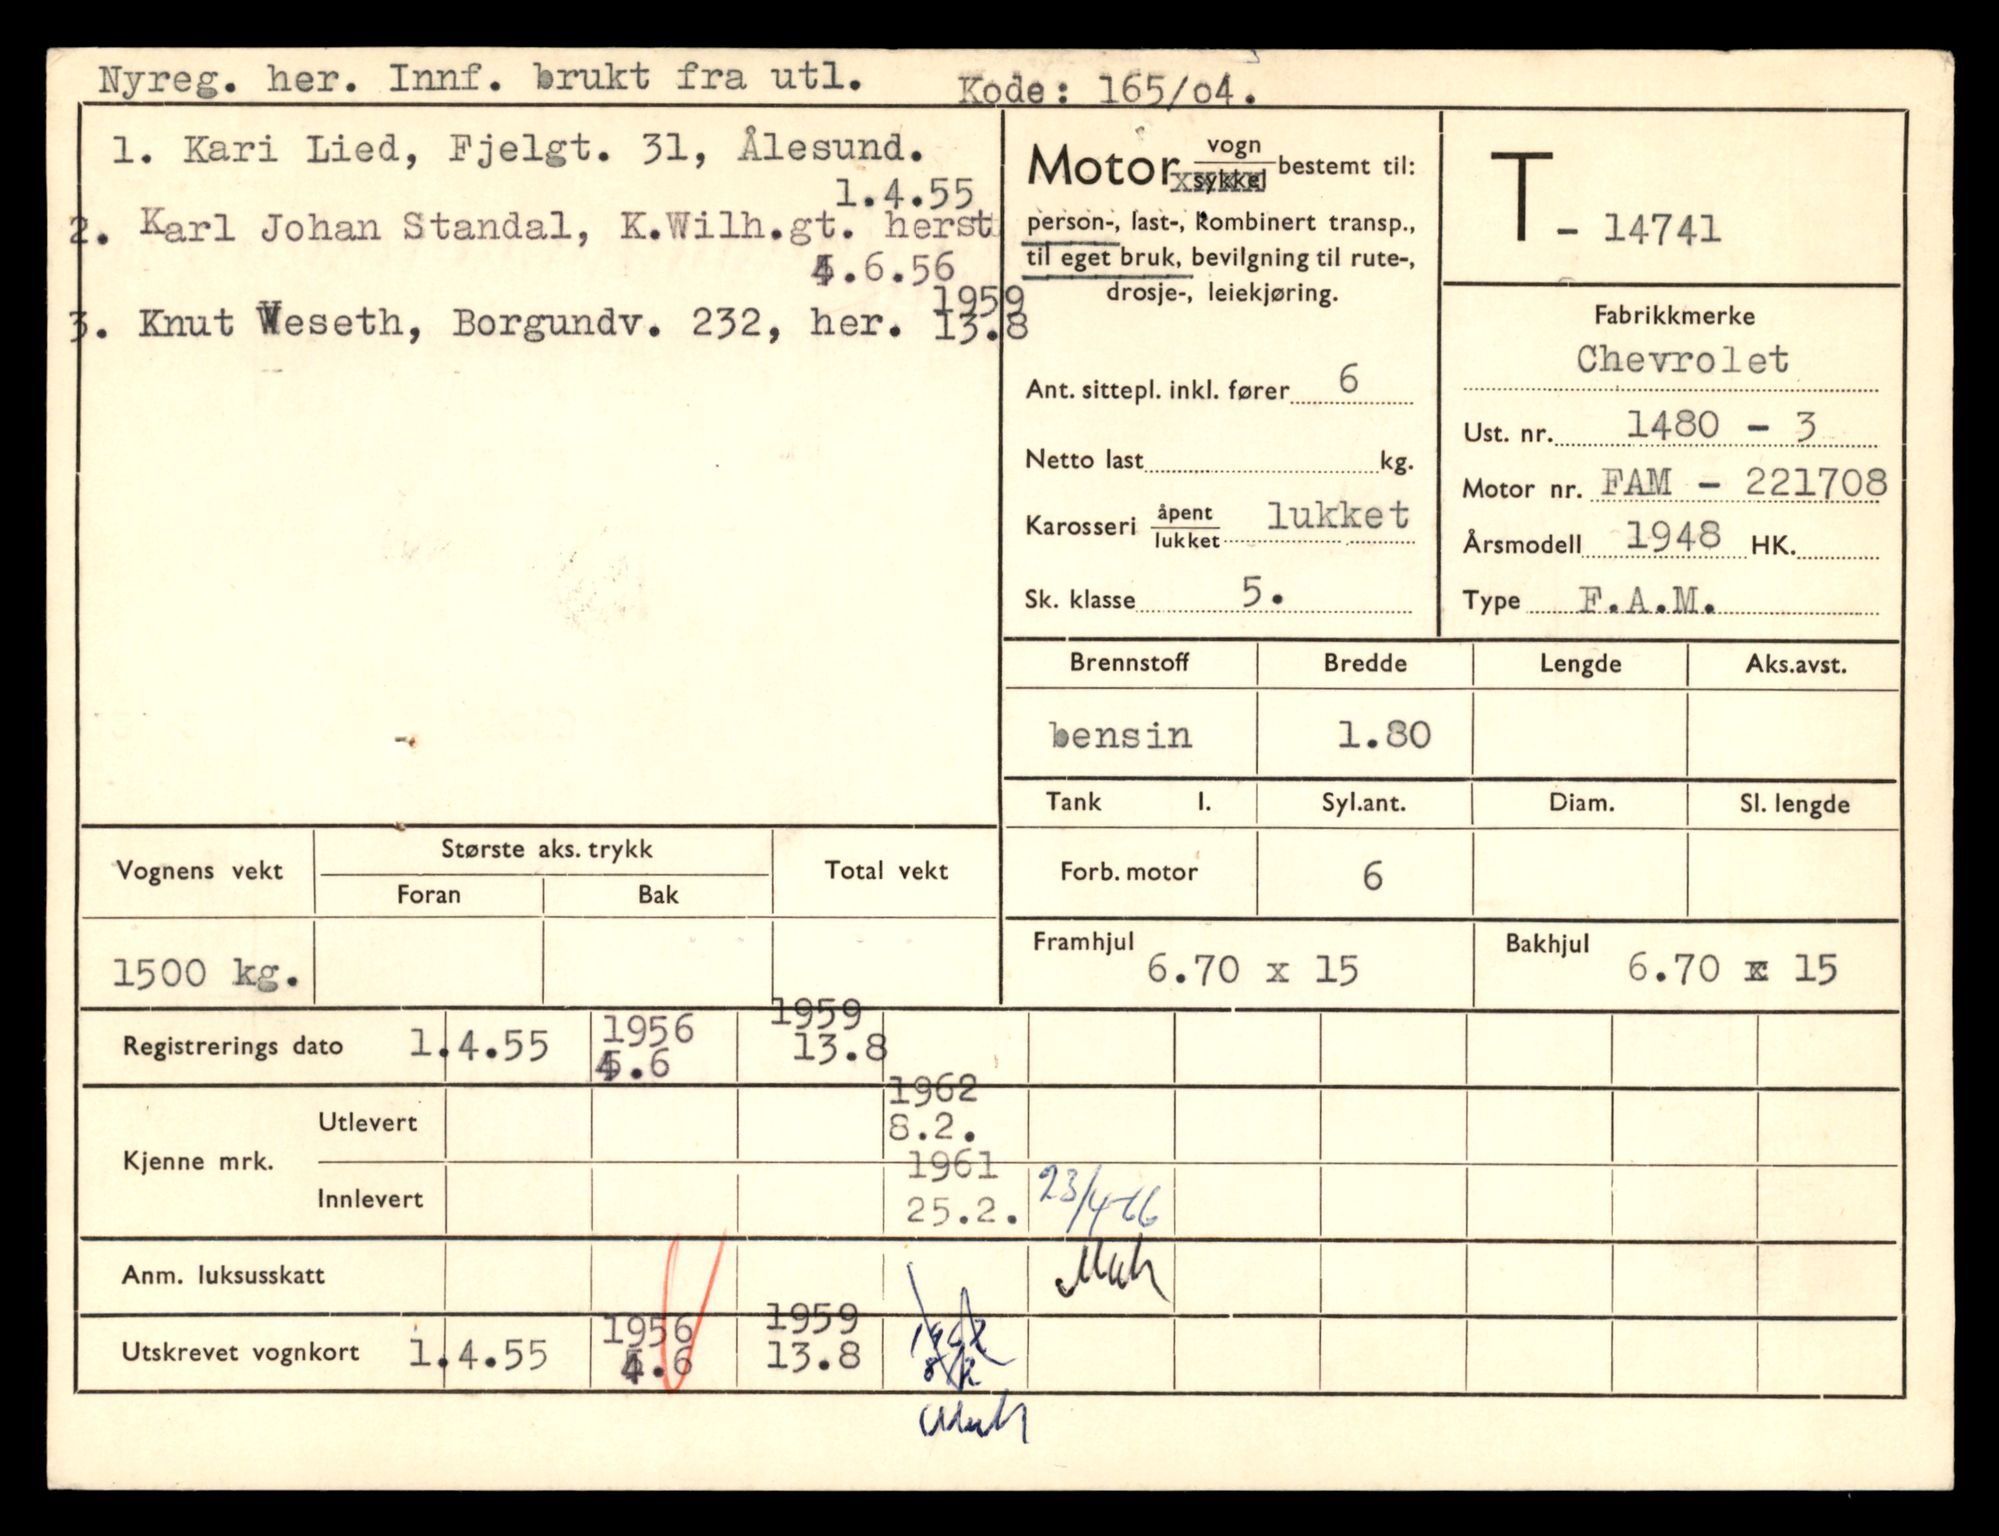 Nyreg. her. Innf. brukt fra utl. Kode: 165/04.
1. Kari Lied, Fjelgt. 31, Ålesund.
1.4.55
2. Karl Johan Standal, K.Wilh.gt. herst
4.6.56
1959
3. Knut Weseth, Borgundv. 232, her. 13.8
Motor vogn sykkel bestemt til:
person-, last-, kombinert transp.,
til eget bruk, bevilgning til rute-,
drosje-, leiekjøring.
Ant. sittepl. inkl. fører 6
Netto last kg.
Karosseri åpent lukket lukket
Sk. klasse 5.
T - 14741
Fabrikkmerke
Chevrolet
Ust. nr. 1480 - 3
Motor nr. FAM - 221708
Årsmodell 1948 HK.
Type F.A.M.
Brennstoff Bredde Lengde Aks.avst.
bensin 1.80
Tank l. Syl.ant. Diam. Sl. lengde
Forb. motor 6
Framhjul 6.70 x 15 Bakhjul 6.70 x 15
Vognens vekt Største aks. trykk Total vekt
Foran Bak
1500 kg.
1956 1959
Registrerings dato 1.4.55 4.6 13.8
1962
Utlevert 8.2.
Kjenne mrk.
1961
Innlevert 25.2. 23/4-66
Anm. luksusskatt
1956 1959 1962
Utskrevet vognkort 1.4.55 4.6 13.8 8/2